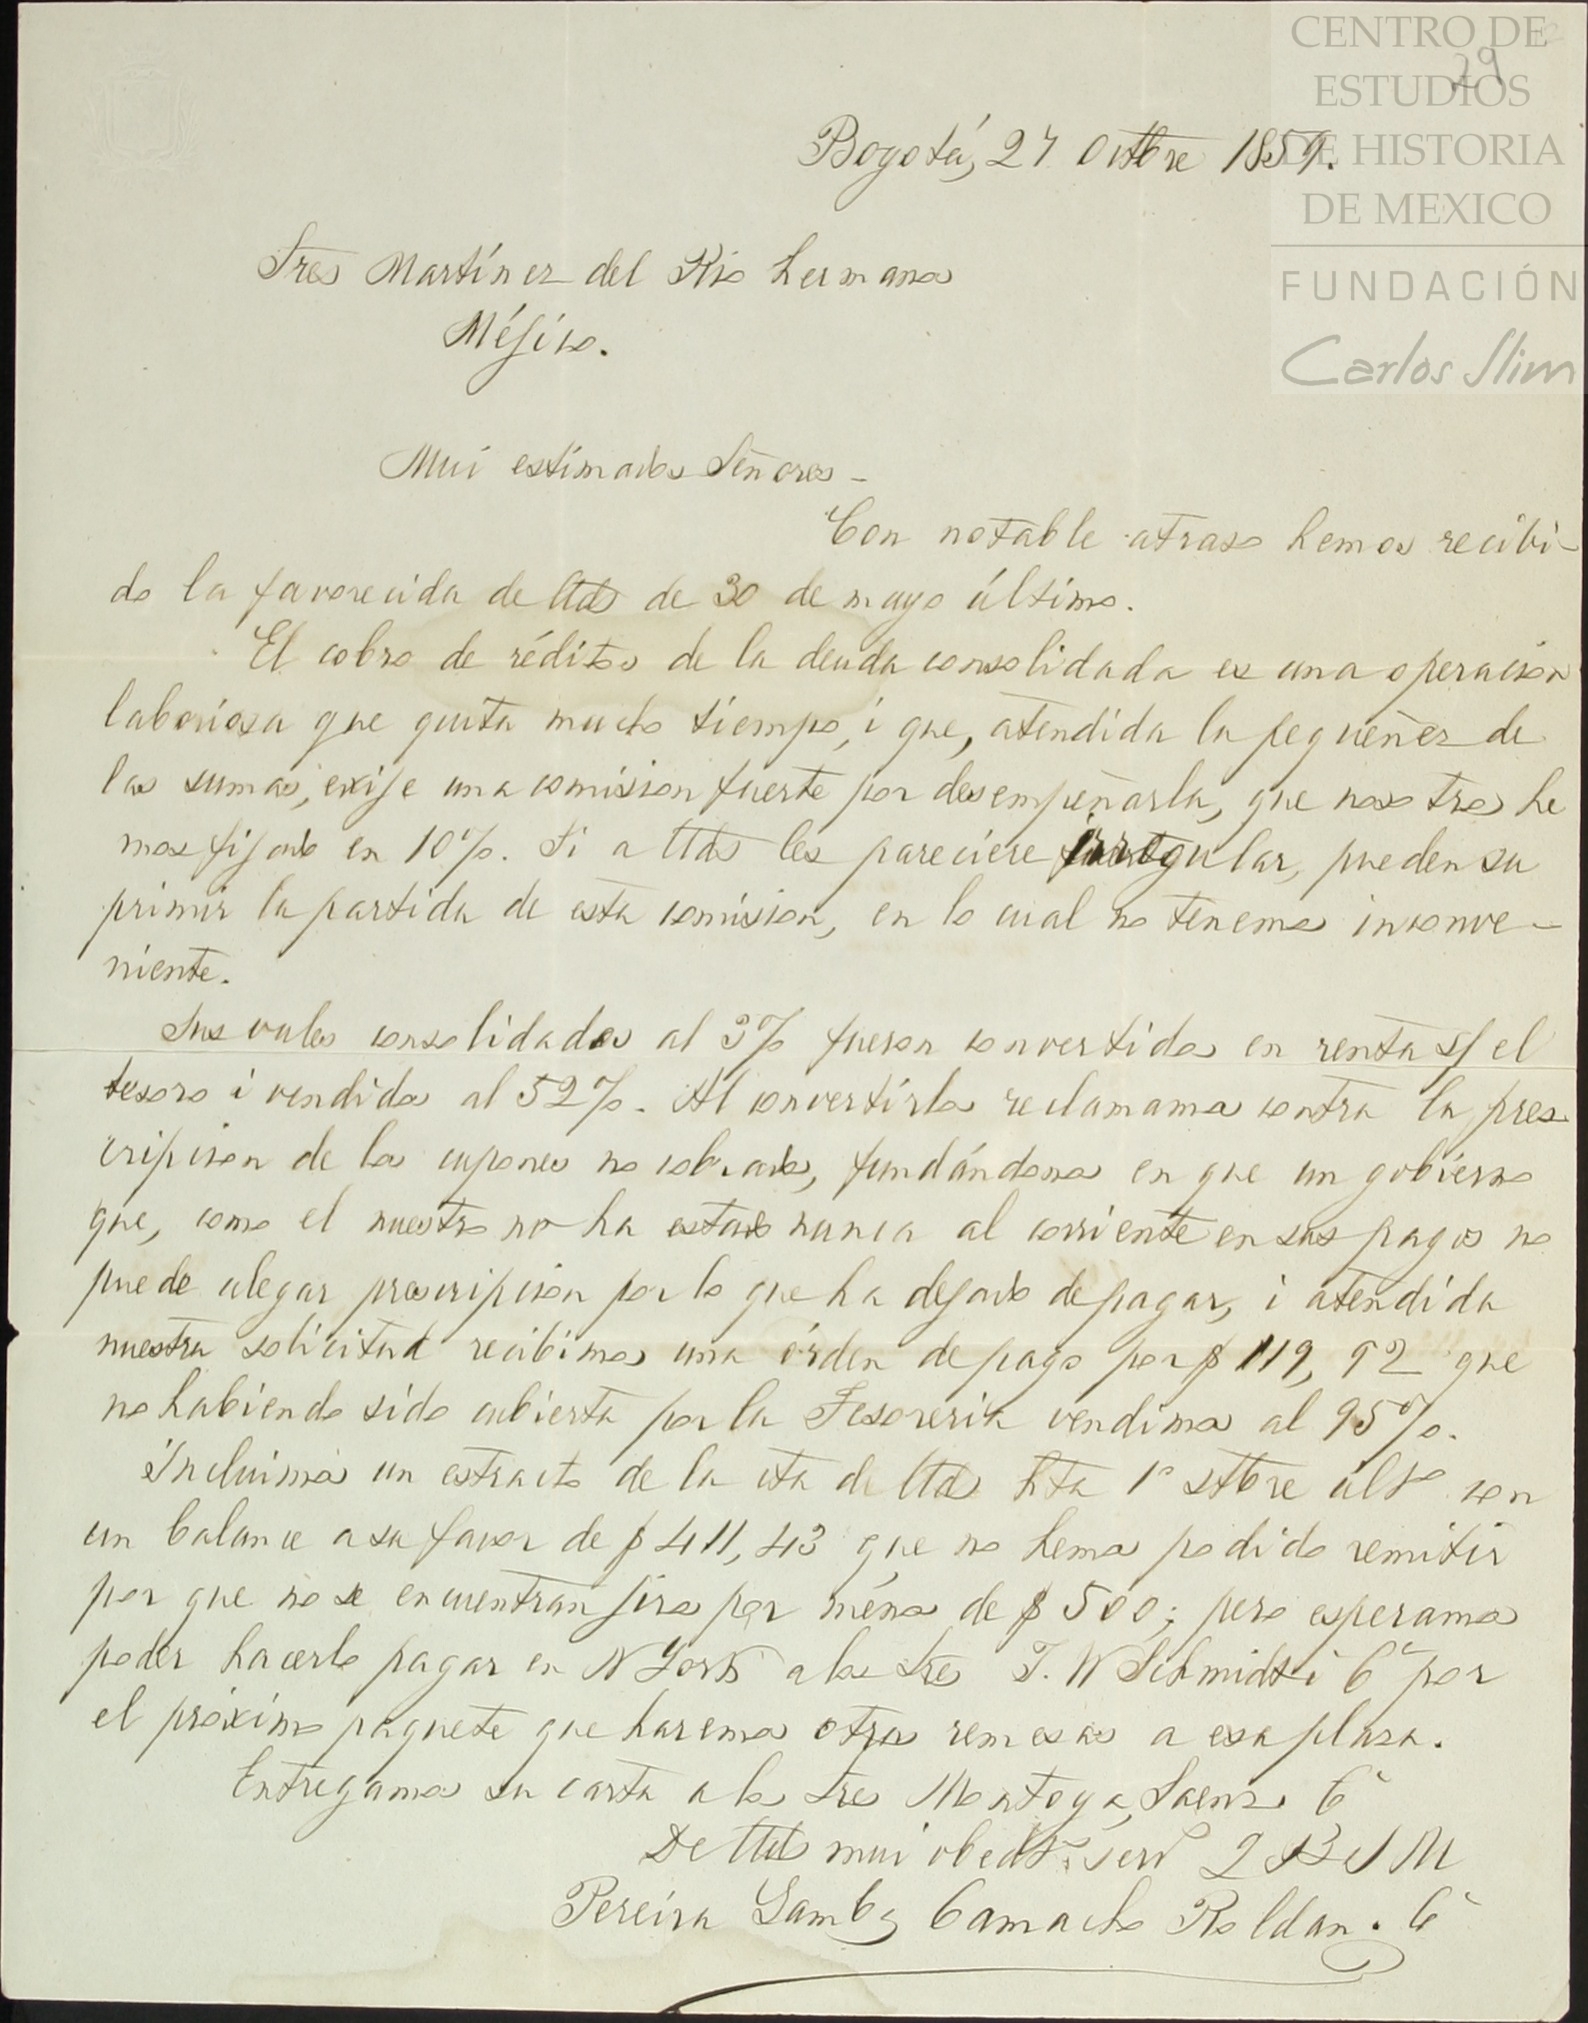 CENTRO DE
ESTUDIOS
DE HISTORIA
DE MEXICO
FUNDACIÓN
Carlos Slim
29
Bogotá, 27 Octbre 1859.
Sres Martínez del Rio hermanos
Méjico.
Mui estimados Señores -
Con notable atraso hemos recibi-
do la favorecida de Uds de 30 de mayo último.
El cobro de réditos de la deuda consolidada es una operacion
laboriosa que quita mucho tiempo, i que, atendida la pequeñez de
las sumas, exije una comision fuerte por desempeñarla, que nosotros he
mos fijado en 10%. Si a Uds les pareciere irregular, pueden su
primir la partida de esta comision, en lo cual no tenemos inconve-
niente.
Sus vales consolidados al 3% fueron convertidos en renta s/ el
tesoro i vendidos al 52%. Al convertirlos reclamamos contra la pres
cripcion de los cupones no cobrados, fundándonos en que un gobierno
que, como el nuestro no ha estado nunca al corriente en sus pagos no
puede alegar prescripcion por lo que ha dejado de pagar, i atendida
nuestra solicitud recibimos una órden de pago por $ 119, 92 que
no habiendo sido cubierta por la Tesoreria vendimos al 95%.
Incluimos un estracto de la cta de Uds hta 1º stbre ulto con
un balance a su favor de $ 411, 43 que no hemos podido remitir
por que no se encuentran jiros por ménos de $ 500; pero esperamos
poder hacerlo pagar en N York a los Sres J. W Schmidt i Cª por
el próximo paquete que haremos otras remesas a esa plaza.
Entregamos su carta a los Sres Montoya, Saenz Cª
De Uds mui obedts. serv Q B S M
Pereira Gamba Camacho Roldan. Cª